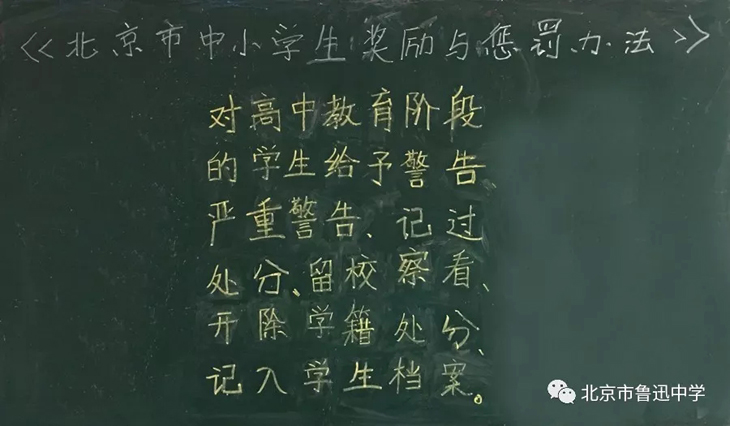 《北京市中小学生奖励与惩罚办法》
对高中教育阶段
的学生给予警告、
严重警告、记过
处分、留校察看、
开除学籍处分、
记入学生档案。
北京市鲁迅中学